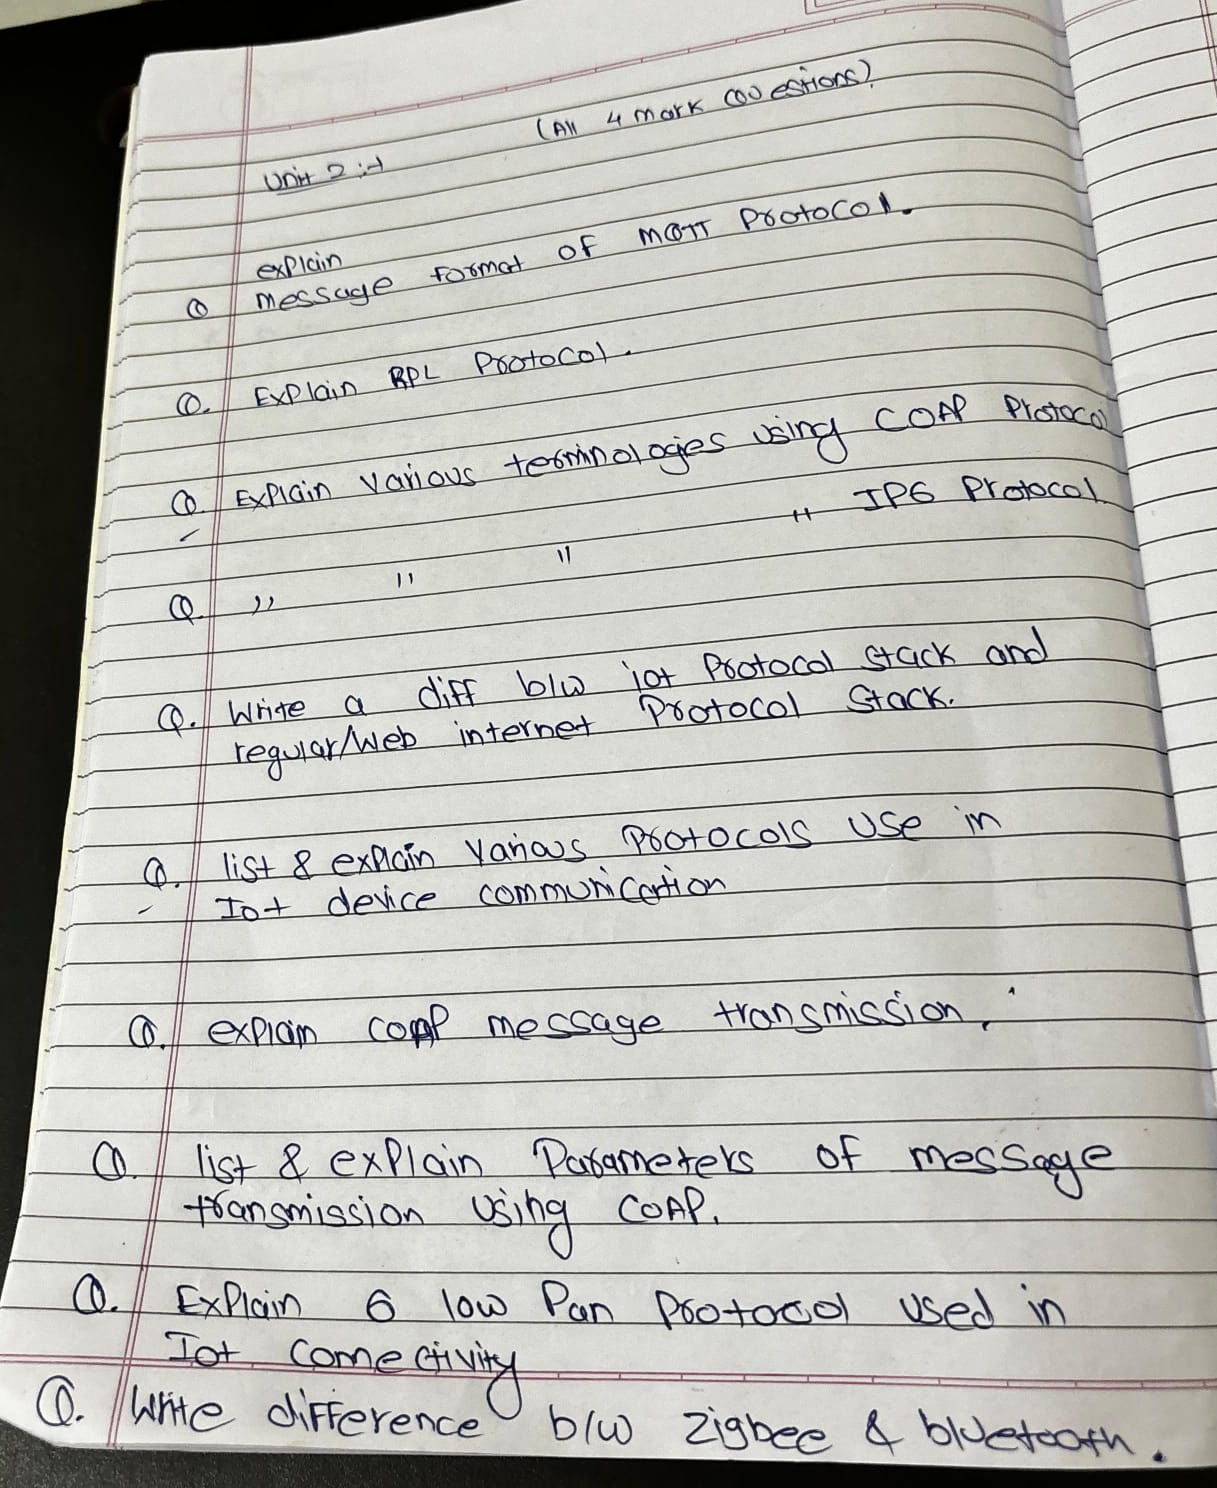 (All 4 mark Questions)
Unit 2 :-
explain
Q message format of MQTT Protocol.
Q. Explain RPL Protocol.
Q Explain Various terminologies using COAP Protocol
Q. " " " " IP6 Protocol
Q. Write a diff b/w iot Protocol stack and
regular/Web internet Protocol Stack.
Q. list & explain Various Protocols use in
Iot device communication
Q. explain COAP message transmission.
Q. list & explain Parameters of message
transmission Using COAP.
Q. Explain 6 low Pan Protocol used in
Iot connectivity
Q. Write difference b/w zigbee & bluetooth.